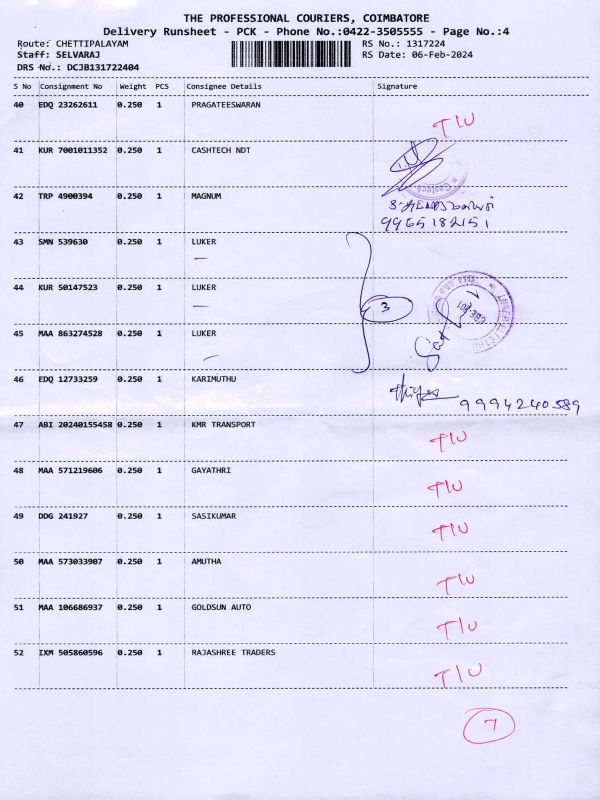 THE PROFESSIONAL COURIERS, COIMBATORE
Delivery Runsheet - PCK - Phone No.:0422-3505555 - Page No.:4
Route: CHETTIPALAYAM RS No.: 1317224
Staff: SELVARAJ RS Date: 06-Feb-2024
DRS No.: DCJB131722404
S No Consignment No Weight PCS Consignee Details Signature
40 EDQ 23262611 0.250 1 PRAGATEESWARAN T/U
41 KUR 7001011352 0.250 1 CASHTECH NDT
42 TRP 4900394 0.250 1 MAGNUM
9965182151
43 SMN 539630 0.250 1 LUKER
44 KUR 50147523 0.250 1 LUKER 3
45 MAA 863274528 0.250 1 LUKER
46 EDQ 12733259 0.250 1 KARIMUTHU 9994240589
47 ABI 20240155458 0.250 1 KMR TRANSPORT T/U
48 MAA 571219606 0.250 1 GAYATHRI T/U
49 DDG 241927 0.250 1 SASIKUMAR T/U
50 MAA 573033907 0.250 1 AMUTHA T/U
51 MAA 106686937 0.250 1 GOLDSUN AUTO T/U
52 IXM 505860596 0.250 1 RAJASHREE TRADERS T/U
7